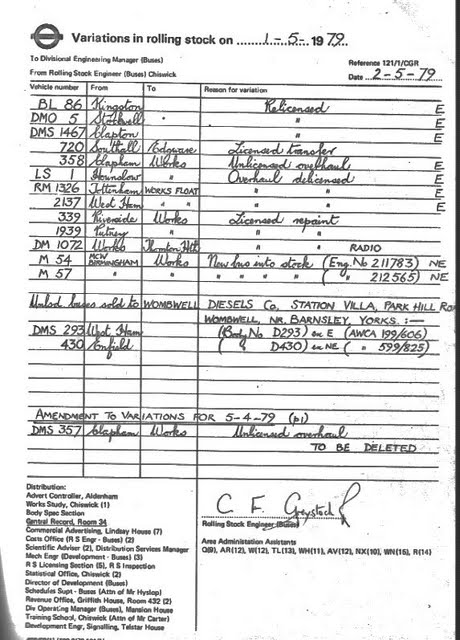 Variations in rolling stock on 1-5-1979.
To Divisional Engineering Manager (Buses)
Reference 121/1/CGR
From Rolling Stock Engineer (Buses) Chiswick
Date 2-5-79
Vehicle number From To Reason for variation
BL 86 Kingston Relicensed E
DMO 5 Stockwell " E
DMS 1467 Clapton " E
720 Southall Edgware Licensed transfer E
358 Clapham Works Unlicensed overhaul E
LS 1 Hounslow Overhaul delicensed E
RM 1326 Tottenham WORKS FLOAT " " E
2137 West Ham " " " " E
339 Riverside Works Licensed repaint
1939 Putney " " "
DM 1072 Works Thornton Hth " RADIO
M 54 MCW BIRMINGHAM Works New bus into stock (Eng. No 211783) NE
M 57 " " " " " ( " 212565) NE
Unlsd buses sold to WOMBWELL DIESELS Co, STATION VILLA, PARK HILL
WOMBWELL, NR. BARNSLEY, YORKS. :—
DMS 293 West Ham (Body No D293) ex E (AWCA 199/606)
430 Enfield ( " D430) ex NE ( " 599/825)
AMENDMENT TO VARIATIONS FOR 5-4-79 (p1)
DMS 357 Clapham Works Unlicensed overhaul
TO BE DELETED
Distribution:
Advert Controller, Aldenham
Works Study, Chiswick (1)
Body Spec Section
Central Record, Room 34
Commercial Advertising, Lindsay House (7)
Costs Office (R S Engr - Buses) (2)
Scientific Adviser (2), Distribution Services Manager
Mech Engr (Development - Buses) (3)
R S Licensing Section (5), R S Inspection
Statistical Office, Chiswick (2)
Director of Development (Buses)
Schedules Supt - Buses (Attn of Mr Hyslop)
Revenue Office, Griffith House, Room 432 (2)
Div Operating Manager (Buses), Mansion House
Training School, Chiswick (Attn of Mr Carter)
Development Engr, Signalling, Telstar House
C F
Rolling Stock Engineer (Buses)
Area Administration Assistants
Q(9), AR(12), W(12), TL(13), WH(11), AV(12), NX(10), WN(16), R(14)